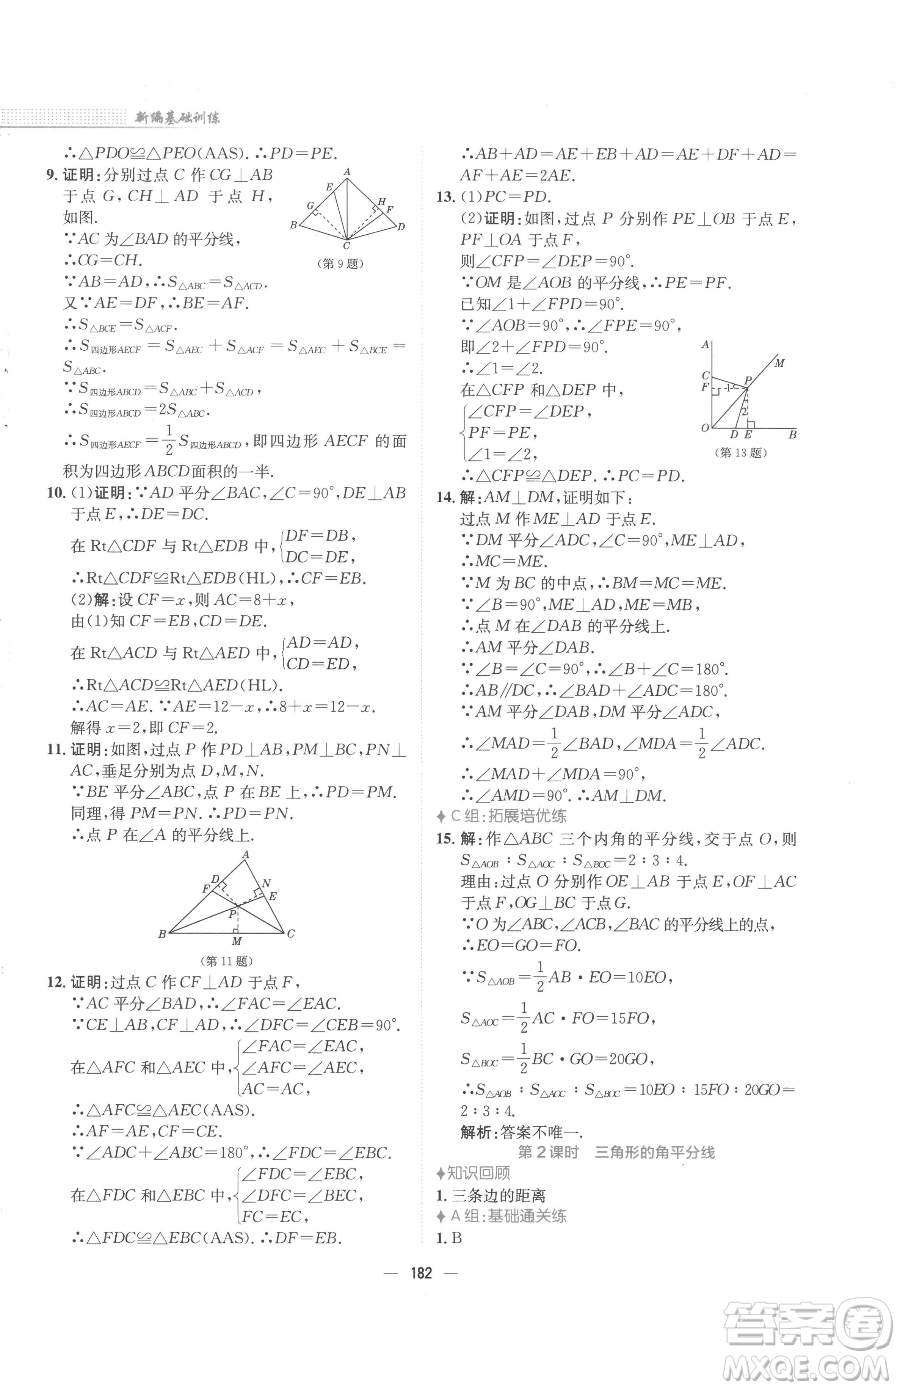 新编基础训练
∴△PDO≌△PEO(AAS). ∴PD=PE.
9. 证明:分别过点 C 作 CG⊥AB
于点 G, CH⊥AD 于点 H,
如图.
∵AC 为∠BAD 的平分线,
∴CG=CH.
∵AB=AD, ∴S△ABC=S△ACD.
又∵AE=DF, ∴BE=AF.
∴S△BCE=S△ACF.
∴S四边形AECF=S△AEC+S△ACF=S△AEC+S△BCE=
S△ABC.
∵S四边形ABCD=S△ABC+S△ACD,
∴S四边形ABCD=2S△ABC.
∴S四边形AECF=1/2 S四边形ABCD,即四边形 AECF 的面
积为四边形 ABCD面积的一半.
A
E
H
G
F
B
D
C
(第 9 题)
10. (1)证明:∵AD 平分∠BAC,∠C=90°,DE⊥AB
于点 E, ∴DE=DC.
在 Rt△CDF 与 Rt△EDB 中, {DF=DB,
DC=DE,
∴Rt△CDF≌Rt△EDB(HL). ∴CF=EB.
(2)解:设 CF=x,则 AC=8+x,
由(1)知 CF=EB,CD=DE.
在 Rt△ACD 与 Rt△AED 中, {AD=AD,
CD=ED,
∴Rt△ACD≌Rt△AED(HL).
∴AC=AE. ∵AE=12-x, ∴8+x=12-x.
解得 x=2,即 CF=2.
11. 证明:如图,过点 P 作 PD⊥AB,PM⊥BC,PN⊥
AC,垂足分别为点 D,M,N.
∵BE 平分∠ABC,点 P 在 BE 上, ∴PD=PM.
同理,得 PM=PN. ∴PD=PN.
∴点 P 在∠A 的平分线上.
A
D
F
N
E
P
B
M
C
(第 11 题)
12. 证明:过点 C 作 CF⊥AD 于点 F,
∵AC 平分∠BAD, ∴∠FAC=∠EAC.
∵CE⊥AB,CF⊥AD, ∴∠DFC=∠CEB=90°.
在△AFC 和△AEC 中, {∠FAC=∠EAC,
∠AFC=∠AEC,
AC=AC,
∴△AFC≌△AEC(AAS).
∴AF=AE,CF=CE.
∵∠ADC+∠ABC=180°, ∴∠FDC=∠EBC.
在△FDC 和△EBC 中, {∠FDC=∠EBC,
∠DFC=∠BEC,
FC=EC,
∴△FDC≌△EBC(AAS). ∴DF=EB.
∴AB+AD=AE+EB+AD=AE+DF+AD=
AF+AE=2AE.
13. (1)PC=PD.
(2)证明:如图,过点 P 分别作 PE⊥OB 于点 E,
PF⊥OA 于点 F,
则∠CFP=∠DEP=90°.
∵OM 是∠AOB 的平分线, ∴PE=PF.
已知∠1+∠FPD=90°.
∵∠AOB=90°, ∴∠FPE=90°.
即∠2+∠FPD=90°.
∴∠1=∠2.
在△CFP 和△DEP 中,
{∠CFP=∠DEP,
PF=PE,
∠1=∠2,
∴△CFP≌△DEP. ∴PC=PD.
A
M
C
F
P
1
2
O
D
E
B
(第 13 题)
14. 解:AM⊥DM,证明如下:
过点 M 作 ME⊥AD 于点 E.
∵DM 平分∠ADC,∠C=90°,ME⊥AD,
∴MC=ME.
∵M 为 BC 的中点, ∴BM=MC=ME.
∵∠B=90°,ME⊥AD,ME=MB,
∴点 M 在∠DAB 的平分线上.
∴AM 平分∠DAB.
∵∠B=∠C=90°, ∴∠B+∠C=180°.
∴AB∥DC, ∴∠DAB+∠ADC=180°.
∵AM 平分∠DAB,DM 平分∠ADC,
∴∠MAD=1/2∠BAD,∠MDA=1/2∠ADC.
∴∠MAD+∠MDA=90°.
∴∠AMD=90°. ∴AM⊥DM.
C 组:拓展培优练
15. 解:作△ABC 三个内角的平分线,交于点 O,则
S△AOB∶S△AOC∶S△BOC=2∶3∶4.
理由:过点 O 分别作 OE⊥AB 于点 E,OF⊥AC
于点 F,OG⊥BC 于点G.
∵O 为∠ABC,∠ACB,∠BAC 的平分线上的点,
∴EO=GO=FO.
∵S△AOB=1/2 AB·EO=10EO,
S△AOC=1/2 AC·FO=15FO,
S△BOC=1/2 BC·GO=20GO,
∴S△AOB∶S△AOC∶S△BOC=10EO∶15FO∶20GO=
2∶3∶4.
解析:答案不唯一.
第 2 课时 三角形的角平分线
知识回顾
1. 三条边的距离
A 组:基础通关练
1. B
— 182 —
答案圈
MXQE.COM